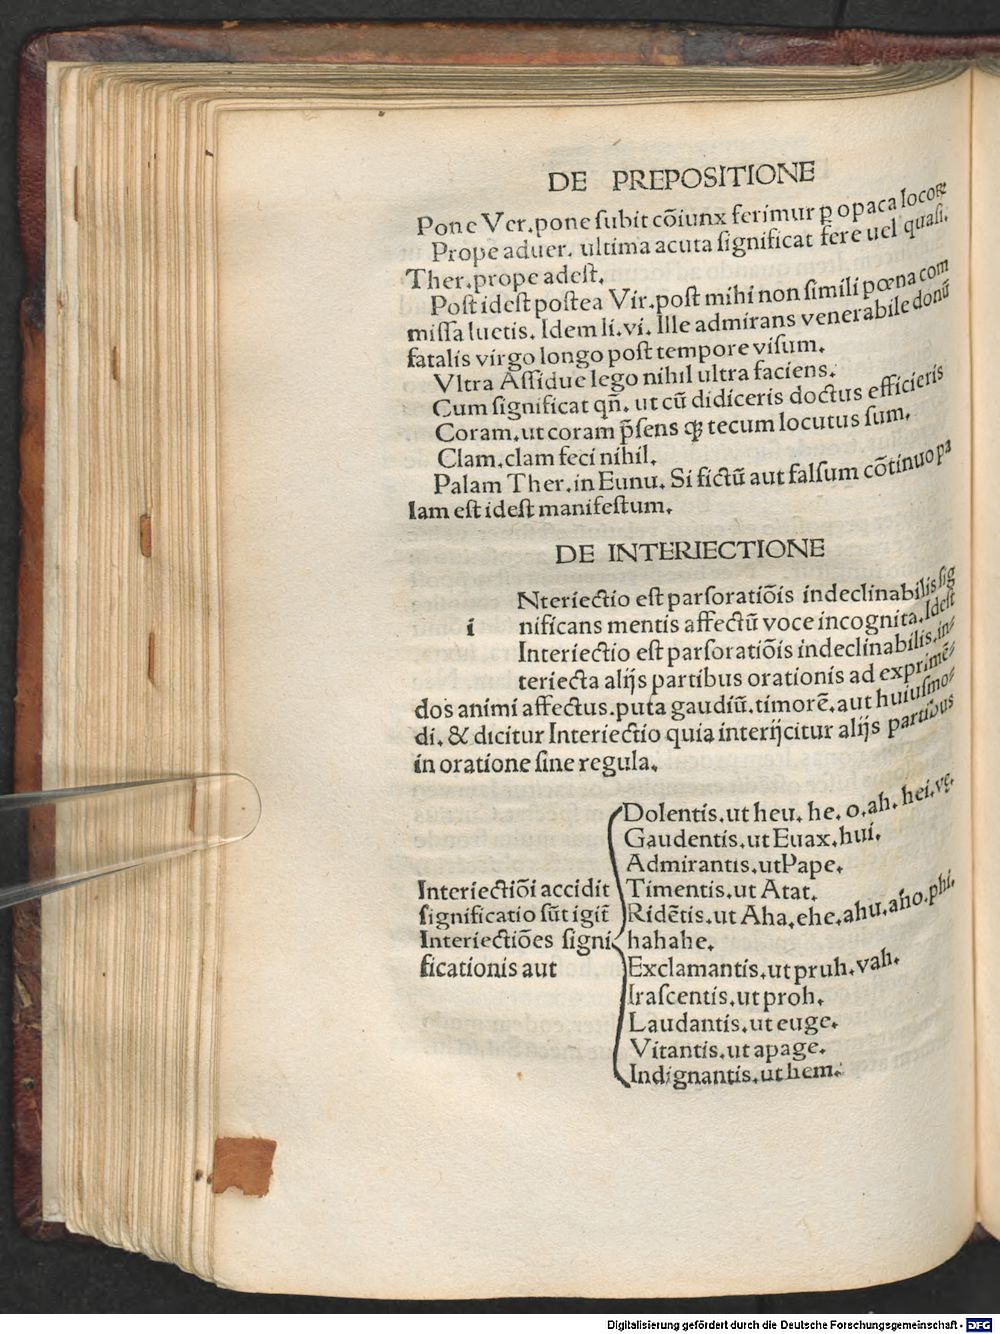 DE PREPOSITIONE
Pone Ver.pone ſubit cõiunx ferimur ꝑ opaca locoꝝ
Prope aduer. ultima acuta ſignificat fere uel quaſi.
Ther.prope adeſt.
Poſt ideſt poſtea Vir.poſt mihi non ſimili pœna com
miſſa luetis. Idem li.vi. Ille admirans venerabile donũ
fatalis virgo longo poſt tempore viſum.
Vltra Aſſidue lego nihil ultra faciens.
Cum ſignificat qñ. ut cũ didiceris doctus efficieris
Coram.ut coram p̃ſens ꝗ tecum locutus ſum.
Clam.clam feci nihil.
Palam Ther.in Eunu. Si fictũ aut falſum cõtinuo pa
lam eſt ideſt manifeſtum.
DE INTERIECTIONE
Nteriectio eſt parſoratiõis indeclinabilis ſig
i nificans mentis affectũ voce incognita. Ideſt
Interiectio eſt parſoratiõis indeclinabilis.in⸗
teriecta alijs partibus orationis ad exprimẽ⸗
dos animi affectus.puta gaudiũ.timorẽ.aut huiuſmo⸗
di. & dicitur Interiectio quia interijcitur alijs partibus
in oratione ſine regula.
Interiectiõi accidit
ſignificatio ſũt igiť
Interiectiões ſigni
ficationis aut
Dolentis.ut heu. he. o.ah. hei.ve.
Gaudentis.ut Euax.hui.
Admirantis.ut Pape.
Timentis.ut Atat.
Ridẽtis.ut Aha.ehe.ahu.aho.phi.
hahahe.
Exclamantis.ut pruh.vah.
Iraſcentis.ut proh.
Laudantis.ut euge.
Vitantis.ut apage.
Indignantis.ut hem.
Digitalisierung gefördert durch die Deutsche Forschungsgemeinschaft - DFG